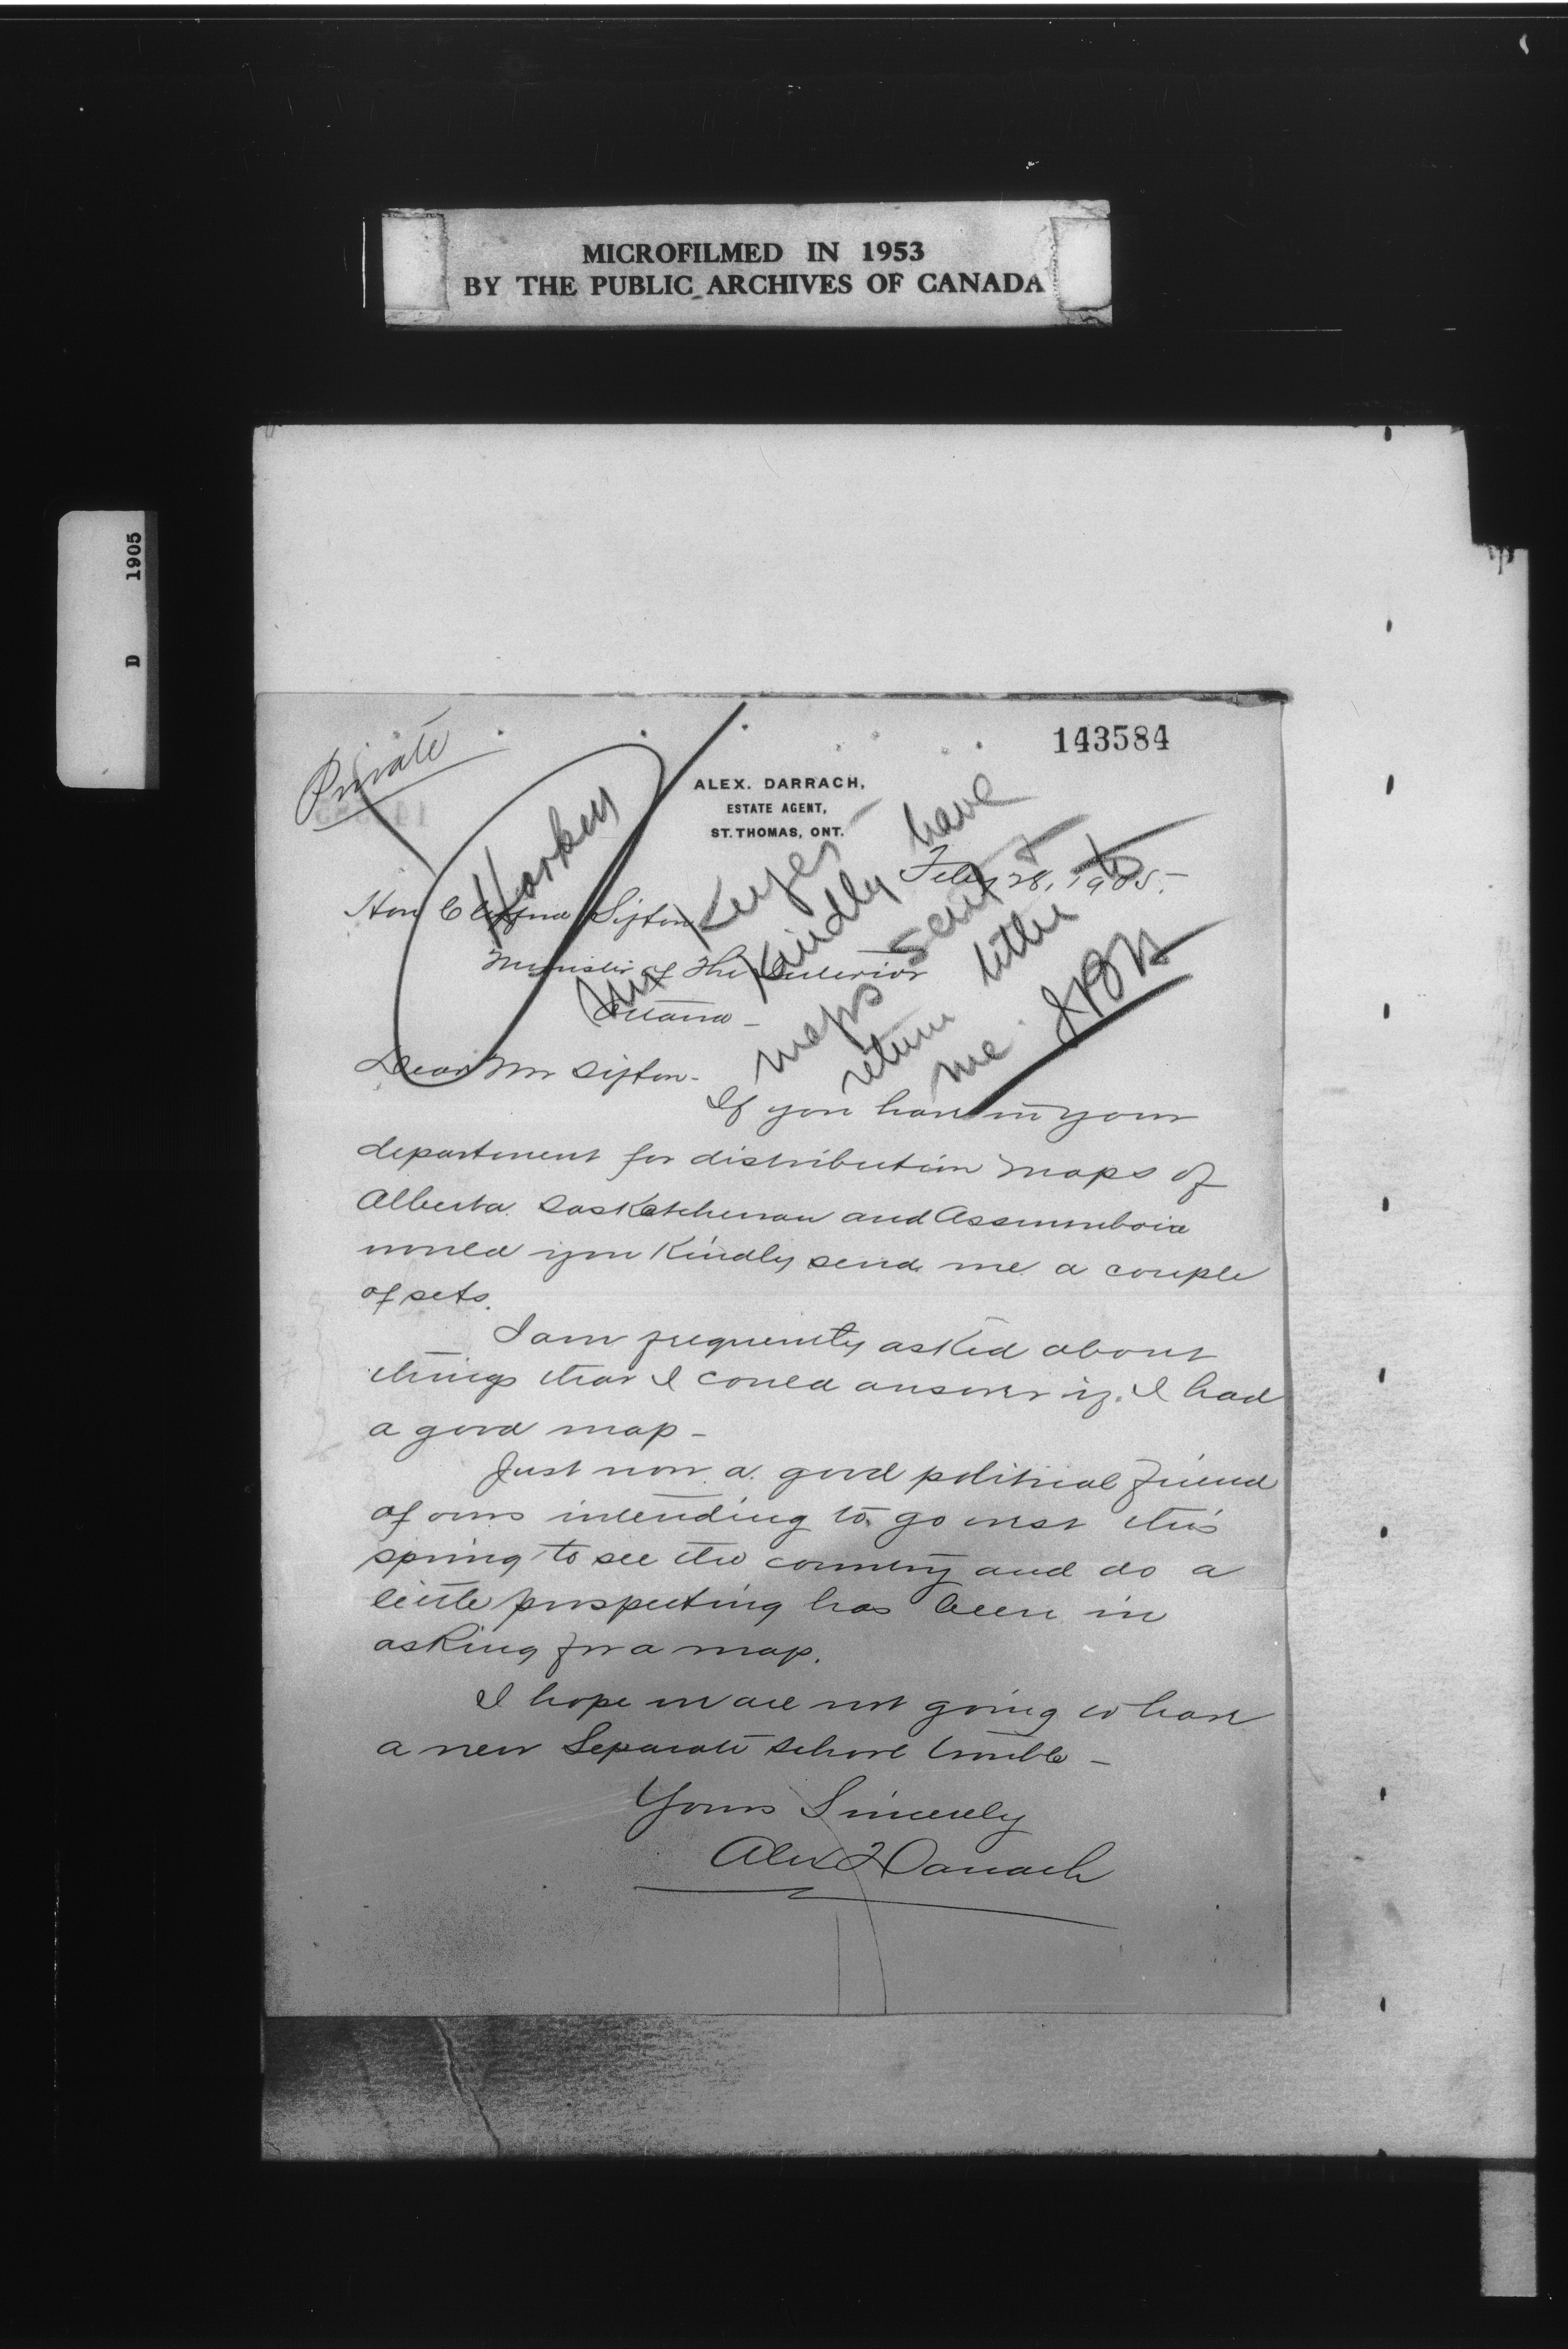 MICROFILMED IN 1953
BY THE PUBLIC ARCHIVES OF CANADA
D 1905
143584
Private
ALEX. DARRACH,
ESTATE AGENT,
ST. THOMAS, ONT.
Feby 28, 1905.
Harkin
Mr Keyes
Kindly have
maps sent &
return letter to
me.
Hon Clifford Sifton
Minister of The Interior
Ottawa -
Dear Mr Sifton -
If you have in your
department for distribution maps of
Alberta. Saskatchewan and Assinniboia
would you Kindly send me a couple
of sets.
I am frequently asked about
things that I could answer if I had
a good map -
Just now a good political friend
of ours intending to go west this
spring to see the country and do a
little prospecting has been in
asking for a map.
I hope we are not going to have
a new Separate School trouble -
Yours Sincerely
Alex Darrach